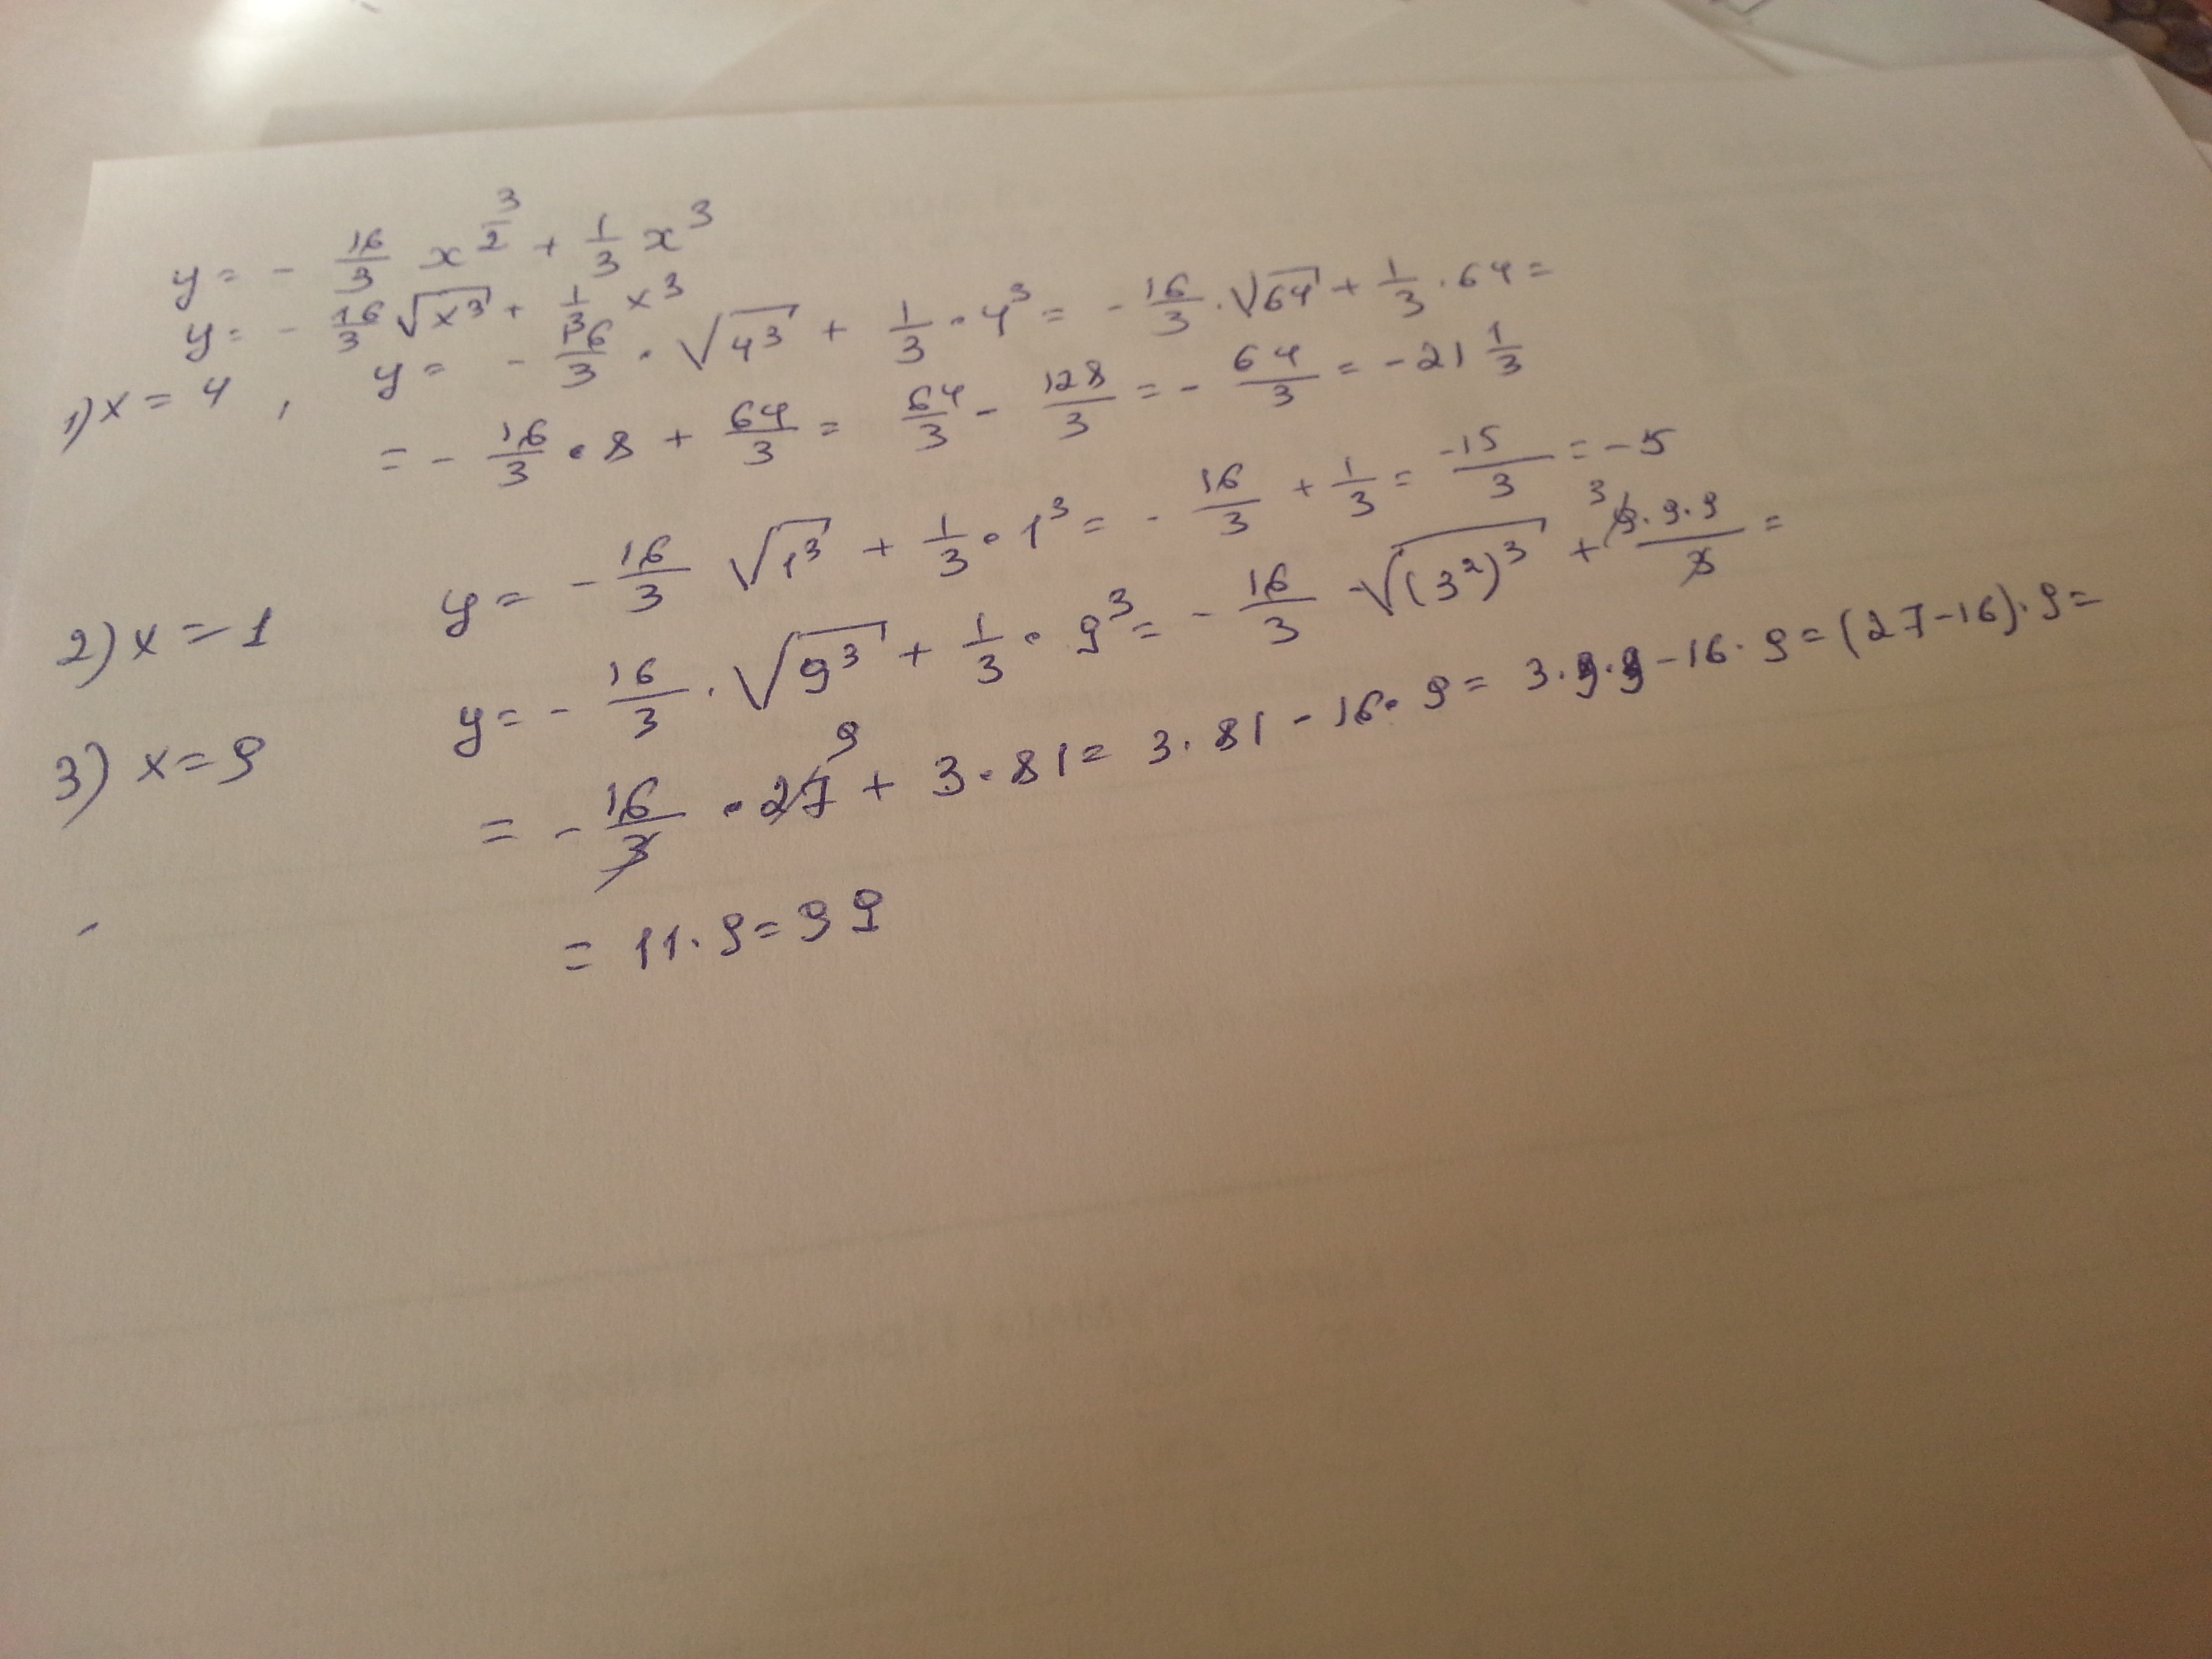 y = - 16/3 x^(3/2) + 1/3 x^3
y = - 16/3 √(x^3) + 1/3 x^3
1) x = 4 , y = - 16/3 · √(4^3) + 1/3 · 4^3 = - 16/3 · √64 + 1/3 · 64 =
= - 16/3 · 8 + 64/3 = 64/3 - 128/3 = - 64/3 = - 21 1/3
2) x = 1 y = - 16/3 √(1^3) + 1/3 · 1^3 = - 16/3 + 1/3 = -15/3 = - 5
3) x = 9 y = - 16/3 · √(9^3) + 1/3 · 9^3 = - 16/3 √((3^2)^3) + 3 9·9·9/3 =
= - 16/3 · 27 9 + 3 · 81 = 3 · 81 - 16 · 9 = 3 · 9 · 9 - 16 · 9 = (27 - 16) · 9 =
= 11 · 9 = 99